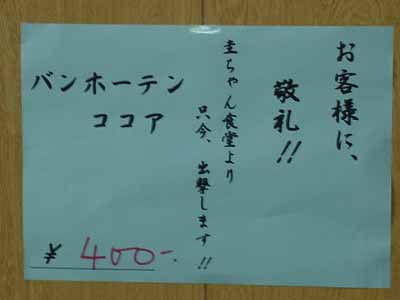 お客様に、
敬礼!!
圭ちゃん食堂より
只今、出撃します!!
バンホーテン
ココア
¥400-.